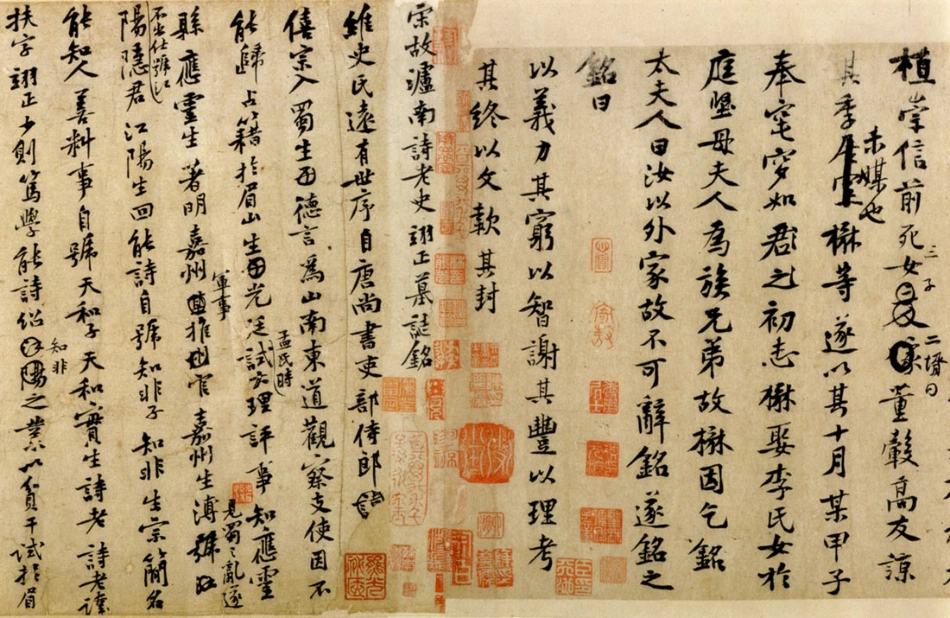 植崇信前死女三子二壻曰董毅高友諒
其季未媒也楙等遂以其十月某甲子
奉窀穸如君之初志楙娶李氏女於
庭堅母夫人為族兄弟故楙因乞銘
太夫人曰汝以外家故不可辭銘遂銘之
銘曰
以義力其窮以智謝其豐以理考
其終以文款其封
宋故瀘南詩老史翊正墓誌銘
維史氏遠有世序自唐尚書吏部侍郎
僖宗入蜀生德言為山南東道觀察支使因不
能歸占籍於眉山生光廷孟氏時試大理評事知應靈
縣應靈生著明嘉州軍事推官嘉州生溥見蜀之亂遂
不出仕號江陽隱君江陽生回能詩自號知非子知非生宗簡名
能知人善料事自號天和子天和實生詩老詩老諱
扶字翊正少則篤學能詩紹知非之業以貢干試於眉